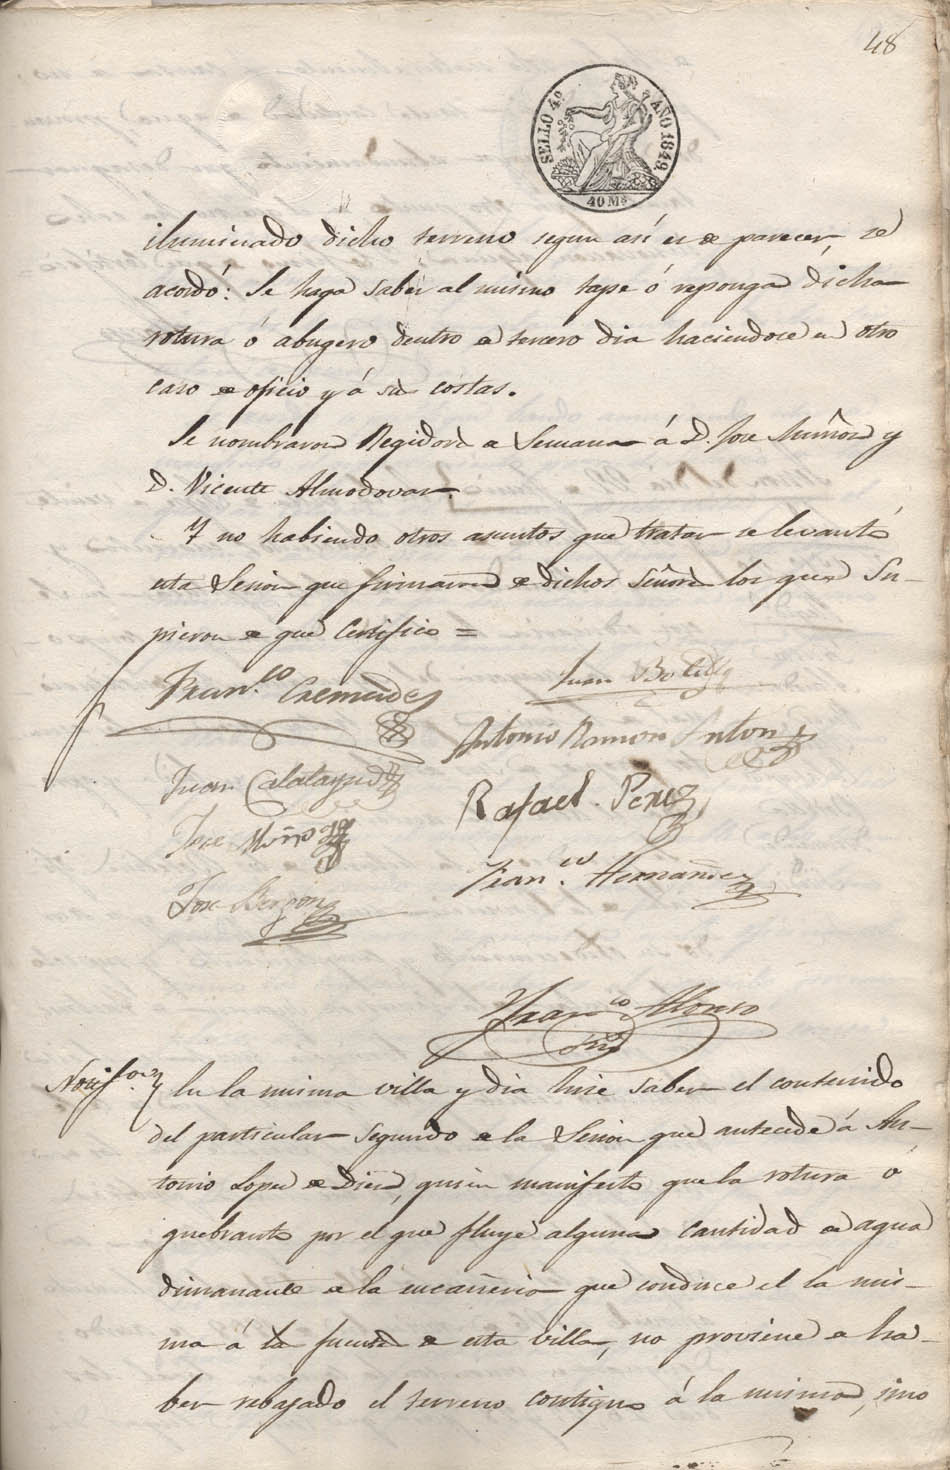 48
SELLO 4º AÑO 1849.
40 Ms
iluminado dicho terreno segun asi es de parecer, se
acordó: Se haga saber al mismo tape ó reponga dicha
rotura ó abugero dentro de tercero dia haciendoce en otro
caso de oficio y á sus costas.
Se nombraron Regidores de Semana á D. Jose Muñoz y
D. Vicente Almodovar.
Y no habiendo otros asuntos que tratar se levantó
esta Sesion que firmaron de dichos Señores los que Su-
pieron de que Certifico =
Fran.co Cremades
Juan Botella
Antonio Ramon Anton
Juan Calatayud
Rafael Perez
Jose Muñoz
Fran.co Hernandez
Jose
Fran.co Alonso
Srio
Notif.on En la misma villa y dia hice saber el contenido
del particular segundo de la Sesion que antecede á An-
tonio Lopez de Diego, quien manifesto que la rotura ó
quebranto por el que fluye alguna cantidad de agua
dimanante de la encañeria que conduce el la mis-
ma á la fuente de esta villa, no proviene de ha-
ber rebajado el terreno contiguo á la misma, sino